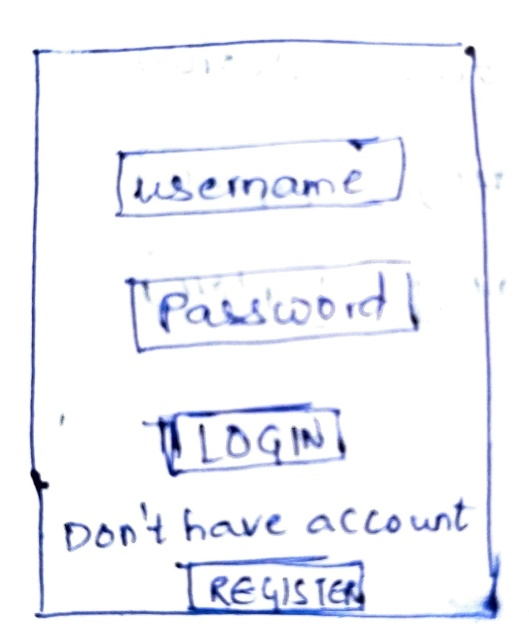 username
Password
LOGIN
Don't have account
REGISTER